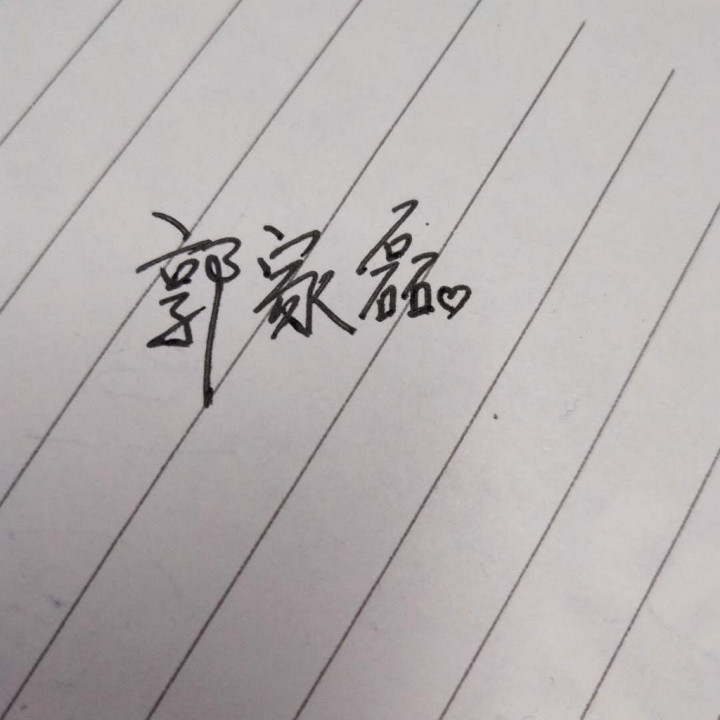 郭家磊♡